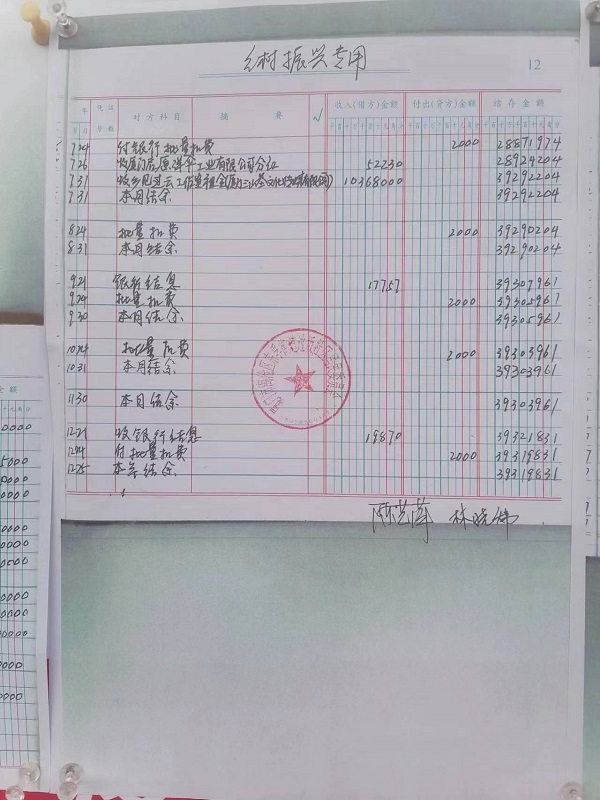 乡村振兴专用
12
年 凭证 对方科目 摘要 √ 收入(借方)金额 付出(贷方)金额 结存金额
月 日 号数 千百十万千百十元角分 千百十万千百十元角分 千百十万千百十元角分
7 24 付银行批量扣费 2000 28871974
7 26 收厦门 工业有限公司分红 52230 28924204
7 31 收乡 工作室租金 10368000 39292204
7 31 本月结余 39292204
8 24 批量扣费 2000 39290204
8 31 本月结余 39290204
9 21 银行结息 17757 39307961
9 24 批量扣费 2000 39305961
9 30 本月结余 39305961
10 24 批量扣费 2000 39303961
10 31 本月结余 39303961
11 30 本月结余 39303961
12 21 收银行结息 19870 39321831
12 24 付批量扣费 2000 39319831
12 25 本年结余 39319831
金额